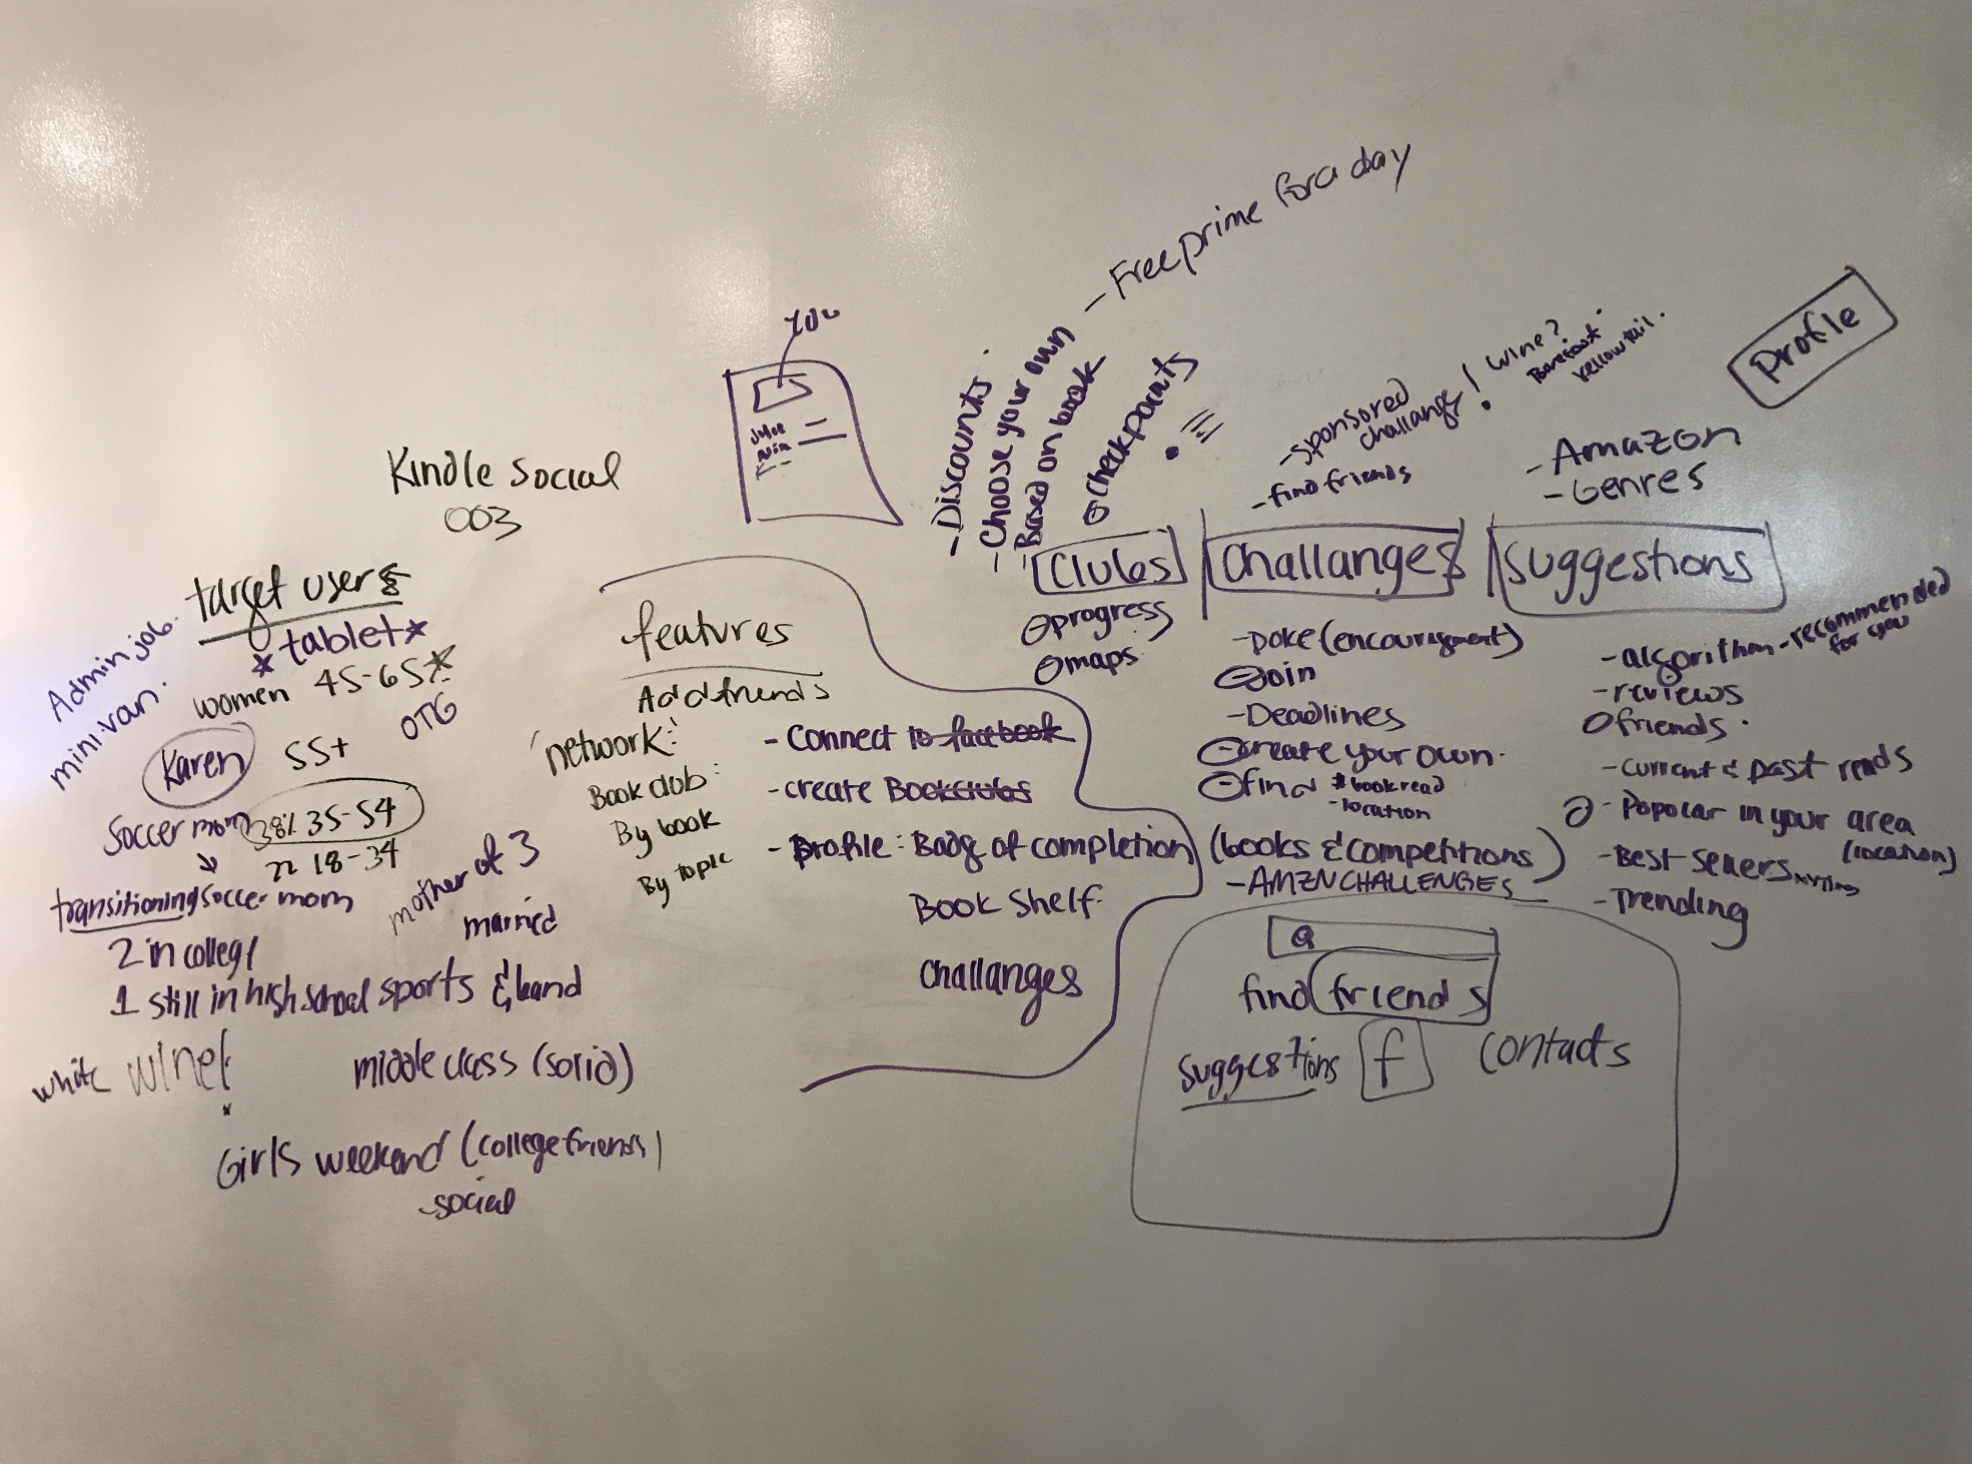 Kindle Social
003
target users
*tablet*
women 45-65*
OTG
Admin job.
mini van.
Karen
55+
Soccer mom
38% 35-54
22 18-34
transitioning soccer mom
mother of 3
married
2 in college
1 still in high school sports & band
white wine!
middle class (solid)
Girls weekend (college friends)
social
features
Add friends
network:
Book club:
By book
By topic
- Connect to facebook
- create Bookclubs
- Profile: Badg of completion (books & competitions)
Book Shelf
Challanges
YOU
- Discounts
- Choose your own
- Based on book
- Free prime for a day
checkpoints
Clubs
progress
maps
- sponsored
challange!
wine?
Barefoot
Yellow tail.
- find friends
Challanges
- Poke (encouragment)
Join
- Deadlines
create your own.
find # book read
- location
- AMZN CHALLENGES
Profile
- Amazon
- Genres
Suggestions
- algorithm - recommended
for you
- reviews
friends.
- current & past reads
- Popular in your area
(location)
- Best Sellers
- Trending
Q
find friends
suggestions f contacts